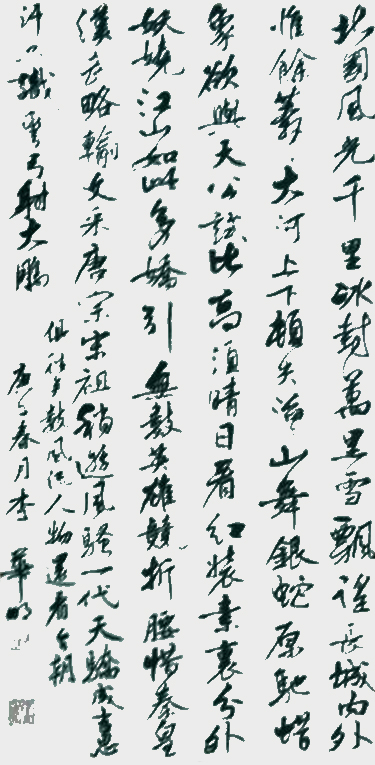 北國風光千里冰封萬里雪飄望长城内外
惟餘莽々大河上下頓失滔々山舞銀蛇原馳蜡
象欲與天公試比高須晴日看红裝素裹分外
妖嬈江山如此多嬌引無數英雄競折腰惜秦皇
漢武略輸文采唐宗宋祖稍遜風騷一代天驕成吉思
汗只識彎弓射大鵰
俱往矣數風流人物還看今朝
庚春月李華明